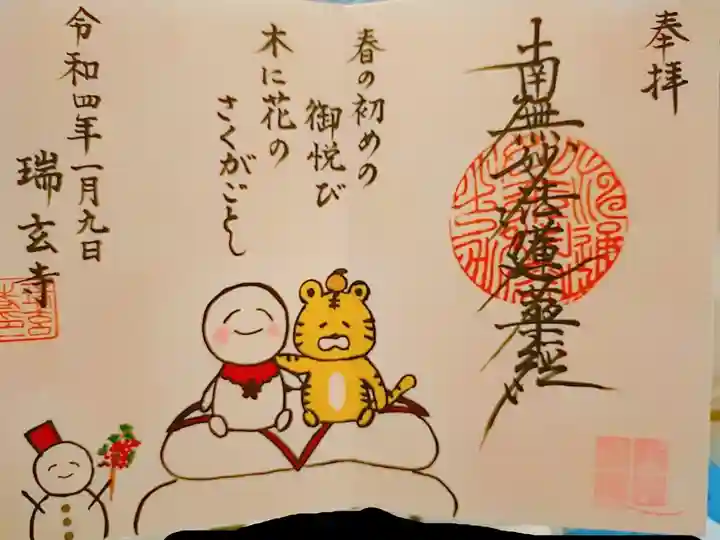 奉拝
南無妙法蓮華経
春の初めの
御悦び
木に花の
さくがごとし
令和四年一月九日
瑞玄寺